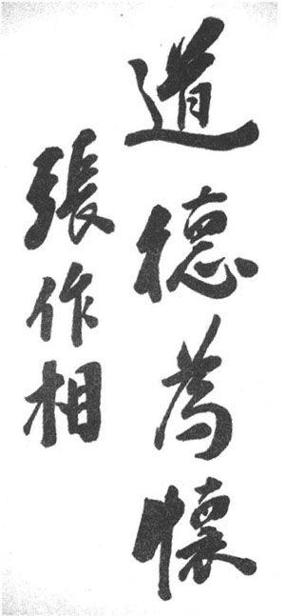 道德為懷
張作相